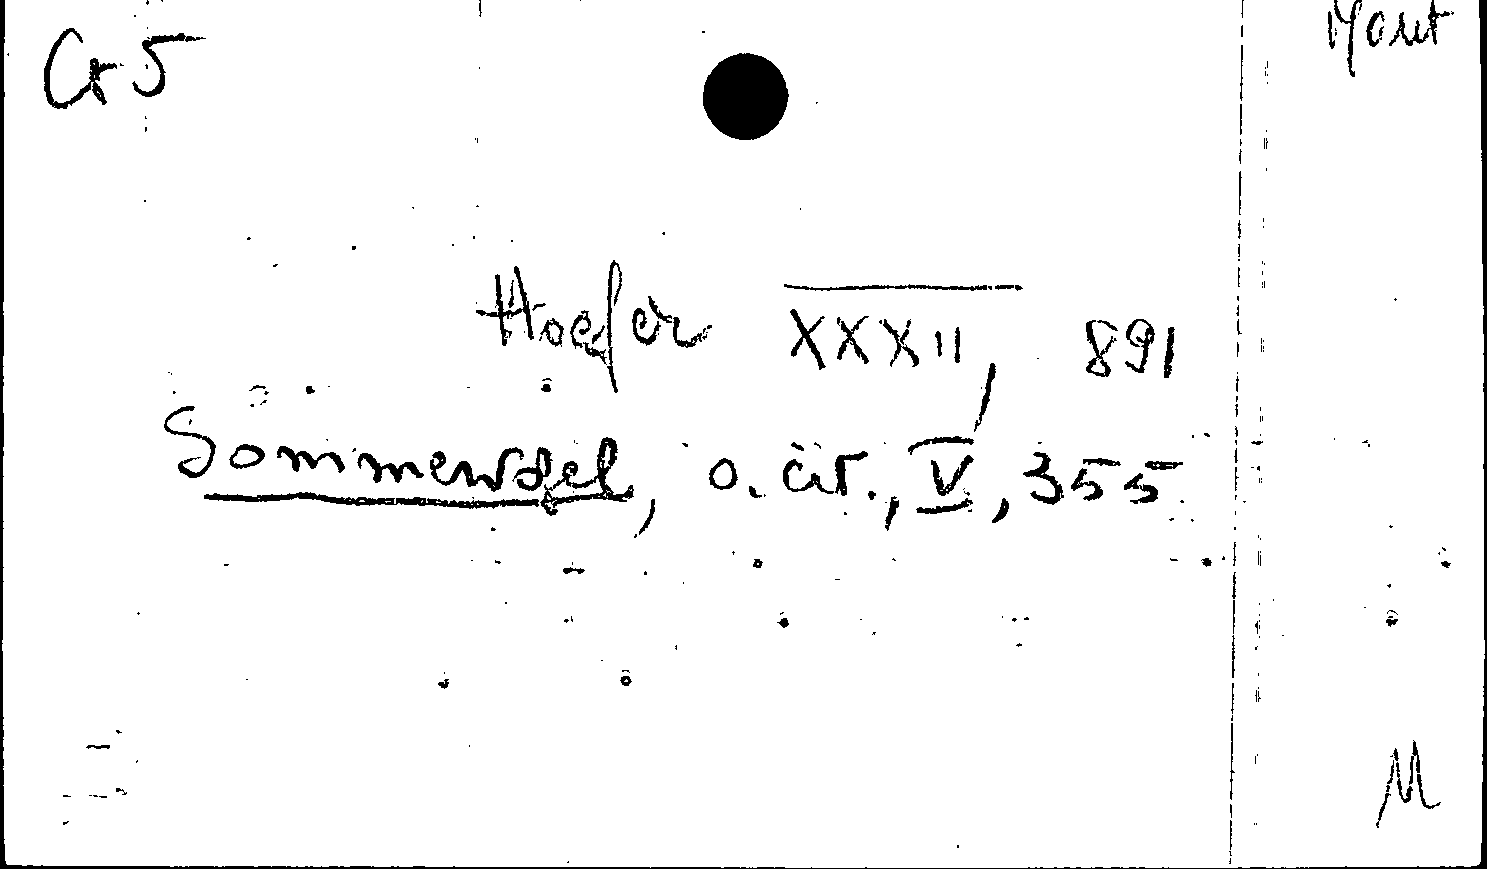 Cr 5
Mout
Hoefer XXXII, 891
Sommervogel, o. cit., V, 355
M